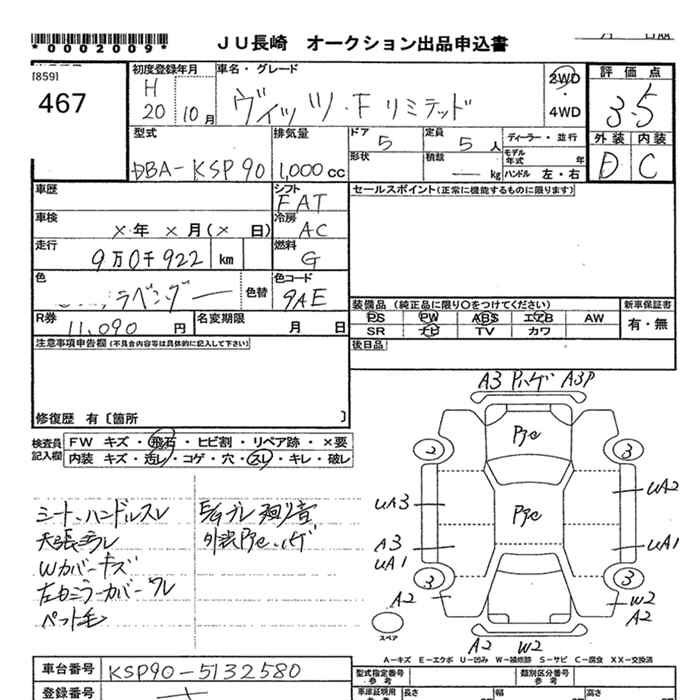 *0002009*
JU長崎 オークション出品申込書
[859]
467
初度登録年月
H
20 10月
車名・グレード
ヴィッツ・Fリミテッド
2WD
・
4WD
評価点
3.5
外装 内装
D C
型式
DBA-KSP90
排気量
1,000cc
ドア
5
定員
5人
形状
積載
— kg
ディーラー・並行
モデル年式 年
ハンドル 左・右
車歴
シフト
FAT
車検
×年 ×月(× 日)
冷房
AC
走行
9万0千922 km
燃料
G
色
ラベンダー
色替
色コード
9AE
R券
11,090円
名変期限
月 日
セールスポイント(正常に機能するものに限ります)
装備品 (純正品に限り○をつけてください)
PS PW ABS エアB AW
SR ナビ TV カワ
新車保証書
有・無
後日品
注意事項申告欄(不具合内容等は具体的に記入して下さい)
修復歴 有〔箇所 〕
検査員記入欄
FW キズ・飛石・ヒビ割・リペア跡・×要
内装 キズ・汚レ・コゲ・穴・スレ・キレ・破レ
シート、ハンドルスレ
Wカバーキズ
ペット毛
A3 Pハゲ A3P
2
3
UA3
UA2
A3
UA1
UA1
3
3
A2
W2
A2
スペア
A2 W2
A-キズ E-エクボ U-凹み W-補修跡 S-サビ C-腐食 XX-交換済
車台番号
KSP90-5132580
登録番号
型式指定番号
参考
類別区分番号
参考
車庫証明用
長さ
幅
高さ